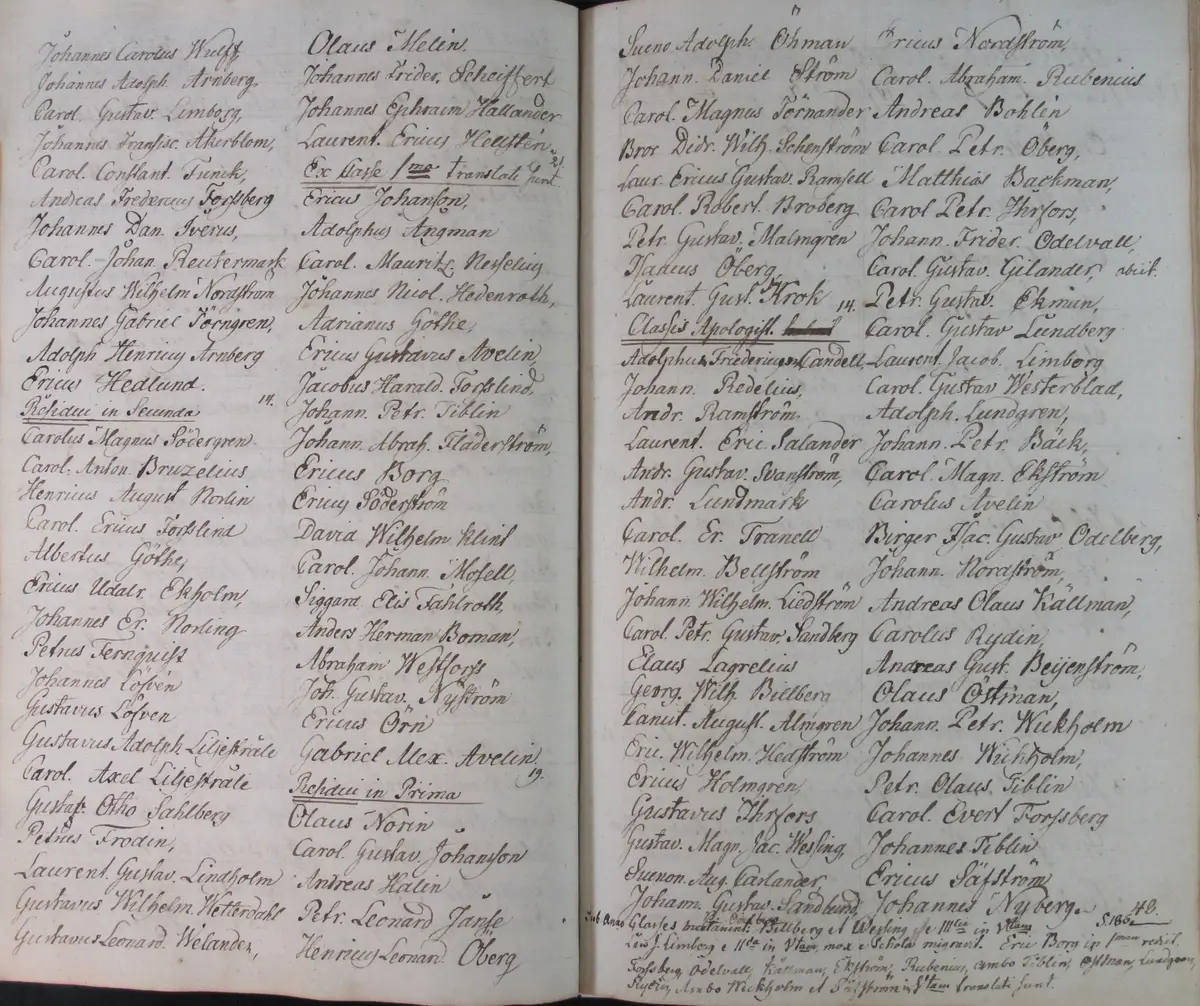 Johannes Carolus Wulff
Johannes Adolph. Arnberg,
Carol. Gustav. Limborg,
Johannes Fransisc. Åkerblom,
Carol. Constant. Funck,
Andreas Fredericus Forssberg
Johannes Dan. Iverus,
Carol. Johan. Reutermark
Augustus Wilhelm Nordström
Johannes Gabriel Törngren,
Adolph Henricus Arnberg
Ericus Hedlund. 14.
Residui in Secunda
Carolus Magnus Södergren.
Carol. Anton. Bruzelius
Henricus August Norlin
Carol. Ericus Forslind
Albertus Göthe,
Ericus Udalr. Ekholm,
Johannes Er. Norling
Petrus Ternquist
Johannes Löfvén
Gustavus Löfven
Gustavus Adolph. Liljestråle
Carol. Axel Liljestråle
Gustaf Otho Sahlberg
Petrus Frodin,
Laurent. Gustav. Lindholm
Gustavus Wilhelm. Wetterdahl
Gustavus Leonard. Welander,
Olaus Melin.
Johannes Frider. Scheiffert
Johannes Ephraim Hallander
Laurent. Ericus Hellstén. 21.
Ex Classe 1ma translati sunt
Ericus Johanson,
Adolphus Ångman
Carol. Mauritz. Nesselius
Johannes Nicol. Hedenroth,
Adrianus Göthe,
Ericus Gustavus Avelin,
Jacobus Harald. Forslind,
Johann. Petr. Tiblin
Johann. Abrah. Fladerström,
Ericus Borg
Ericus Söderström
David Wilhelm Klint
Carol. Johann. Mosell,
Siggard Elis Fahlroth,
Anders Herman Boman,
Abraham Westforss
Joh. Gustav. Nyström
Ericus Örn
Gabriel Alex. Avelin. 19.
Residui in Prima
Olaus Norin
Carol. Gustav. Johansson
Andreas Halin
Petr. Leonard Janse
Henricus Leonard. Öberg
Sueno Adolph. Öhman
Johann. Daniel Ström
Carol. Magnus Törnander
Bror Didr. Wilh. Schenström
Laur. Ericus Gustav. Ramsell
Carol. Robert. Broberg
Petr. Gustav. Malmgren
Isacus Öberg,
Laurent. Gust. Krok 14.
Classis Apologist.
Adolphus Fridericus Candell,
Johann. Redelius,
Andr. Ramström.
Laurent. Eric. Salander
Andr. Gustav. Svanström,
Andr. Lundmark
Carol. Er. Tranell
Wilhelm. Bellström
Johann. Wilhelm. Liedström
Carol. Petr. Gustav. Sandberg
Claus Lagrelius
Georg. Wilh. Billberg
Canut. August. Almgren
Eric. Wilhelm. Hedström
Ericus Holmgren,
Gustavus Ihrfors
Gustav. Magn. Jac. Wessing,
Suenon. Aug. Carlander,
Johann. Gustav. Sandlund
Ericus Nordström,
Carol. Abraham. Rubenius
Andreas Bohlin
Carol. Petr. Öberg,
Matthias Backman,
Carol Petr. Ihrfors,
Johann. Frider. Odelvall,
Carol. Gustav. Gilander, abiit.
Petr. Gustav. Ekman,
Carol. Gustav Lundberg
Laurent. Jacob. Limborg
Carol. Gustav Westerblad,
Adolph. Lundgren,
Johann. Petr. Bäck,
Carol. Magn. Ekström
Carolus Avelin
Birger Isac. Gustav Odelberg,
Johann. Nordström,
Andreas Olaus Källman,
Carolus Rydin,
Andreas Gust. Beijenström,
Olaus Östman,
Johann. Petr. Wickholm
Johannes Wickholm,
Petr. Olaus. Tiblin
Carol. Evert Forssberg
Johannes Tiblin
Ericus Säfström
Johannes Nyberg. 48.
S. 186.
Sub Anno Classes Billberg et Wessing e IIItia in Vtam
Limborg e IIda in Vtam mox e Schola migrant. Eric Borg in Imam rediit.
Forssberg, Odelvall, Källman, Ekström, Rubenius, ambo Tiblin, Östman, Lundgren,
Rydin, Ambo Wickholm et Säfström in translati sunt.